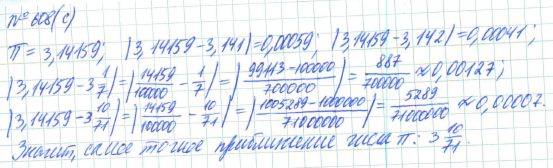 № 608(с)
π = 3,14159; |3,14159-3,141|=0,00059; |3,14159-3,142|=0,00041;
|3,14159-3 1/7|=|14159/10000 - 1/7|=|99113-100000/700000|=887/700000≈0,00127;
|3,14159-3 10/71|=|14159/10000 - 10/71|=|1005289-1000000/71000000|=5289/71000000≈0,00007.
Значит, самое точное приближение числа π: 3 10/71.